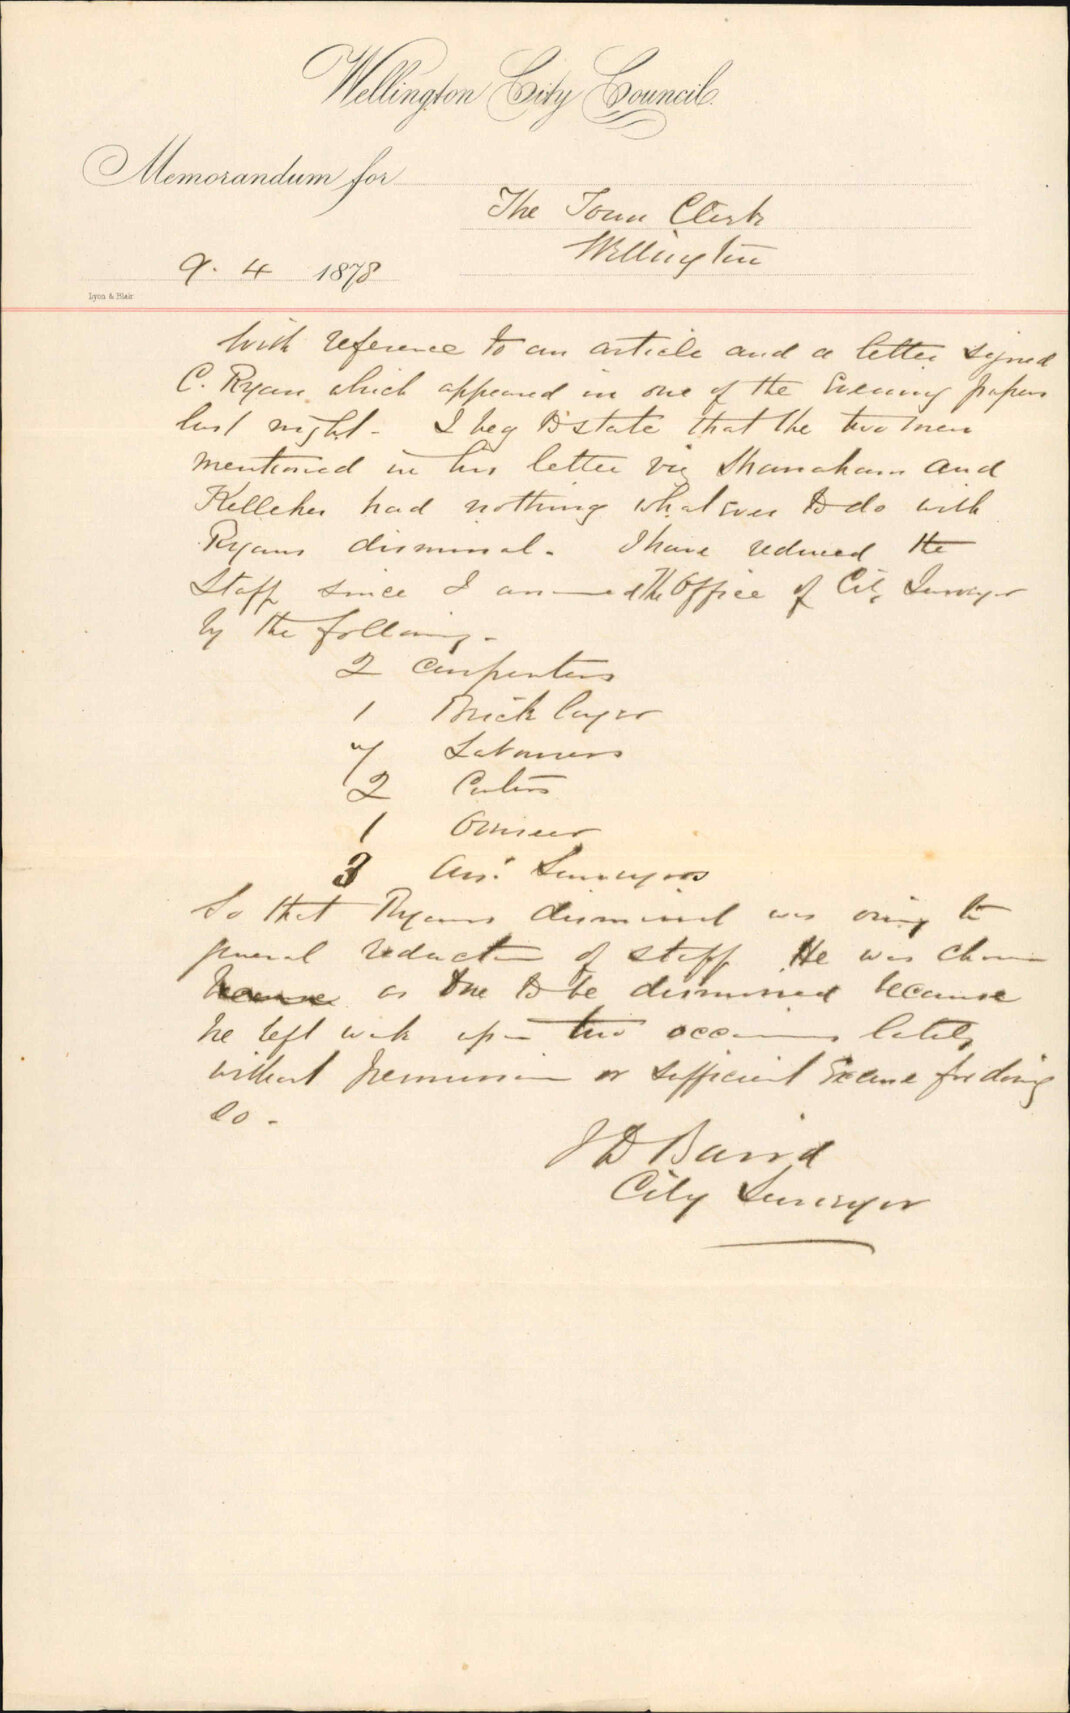 Wellington City Council.
Memorandum for
The Town Clerk
Wellington
9. 4 1878
Lyon & Blair
With reference to an article and a letter signed
C. Ryan which appeared in one of the Evening papers
last night - I beg to state that the two men
mentioned in his letter viz Shanaham and
Kelleher had nothing whatever to do with
Ryans dismissal. I have reduced the
Staff since I assumed the Office of City Surveyor
by the following -
2 Carpenters
1 Brick layer
7 Labourers
2 Carters
1 Overseer
3 Ass: Surveyors
So that Ryans dismissal was owing to
general reduction of staff He was chosen
as one to be dismissed because
he left work upon two occasions lately
without permission or sufficient Excuse for doing
so -
J D Baird
City Surveyor